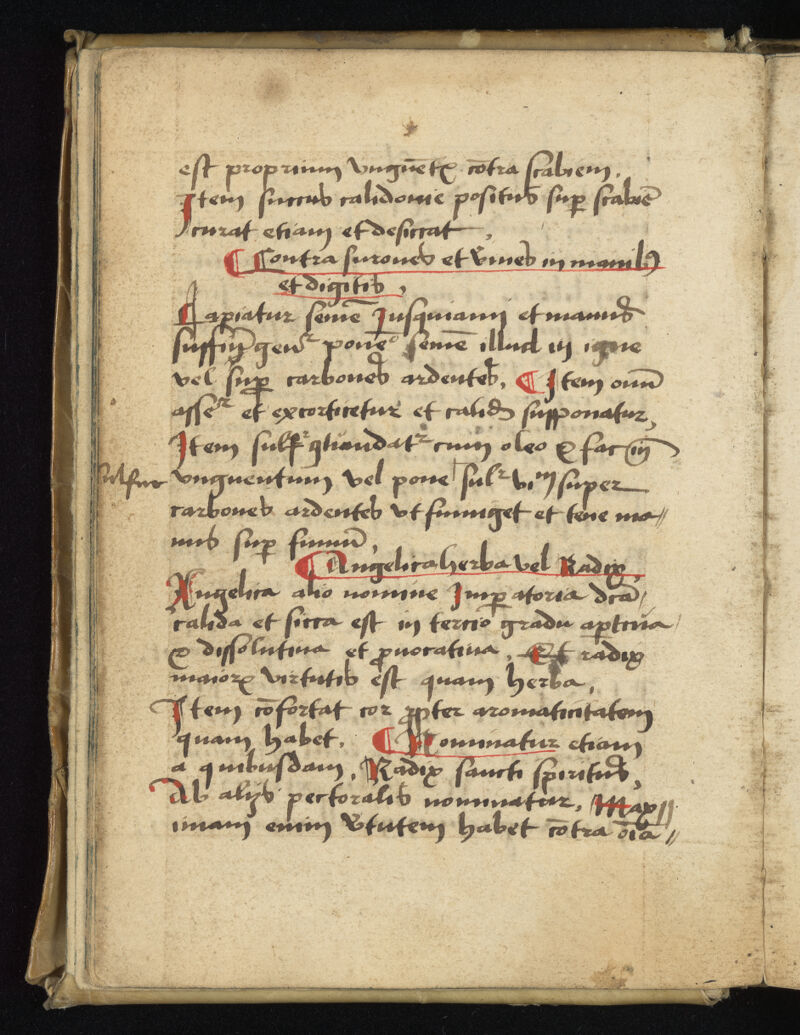 est proprium vnguētꝝ cōtra scabiem.
Item succus calidonie positus sup scabiē
curat etiam et desiccat.
¶ Contra surones et vmes in manibꝰ
et digitis.
¶ Capiatur semē Iusquiami et manus
semē illud in igne
vel sup carbones ardentes. ¶ Item ouū
asseʳ et excorticetur et calidū supponatur.
Item cum oleo fac
Sulfur
vnguentum vel pone super
carbones ardentes vt fumiget et tene ma//
nus sup fumū.
¶ Angelica herba vel Radix.
Angelica alio nomine Imperatoria dcā/
calida et sicca est in tercio gradu
dissolutiua et ꝓuocatiua. Et radix
maiorꝭ virtutis est quam herba.
Item cōfortat cor ꝓpter aromaticitatem
quam habet. ¶ Nominatur etiam
a quibusdam. Radix sancti spiritus.
Ab alijs pectoralis nominatur. Max//
imam enim v̄tutem habet cōtra oīa//